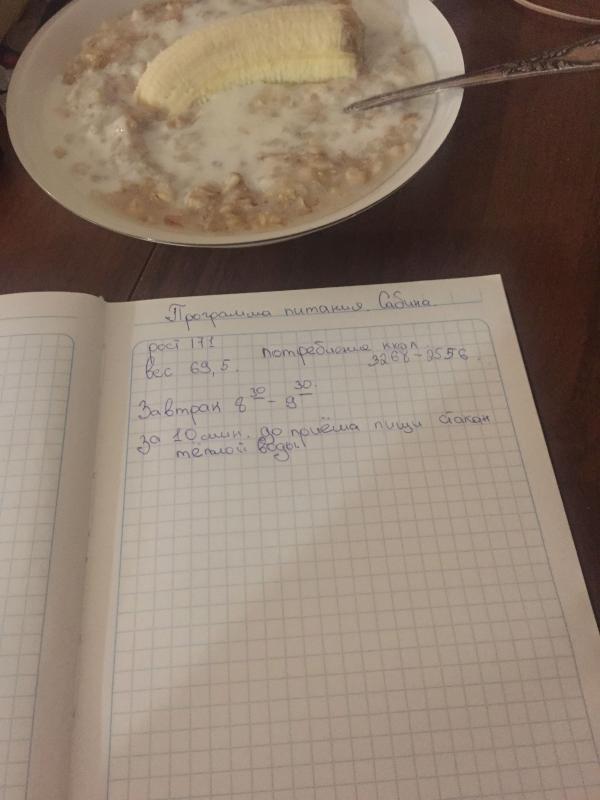 Программа питания. Сабина
рост 171
вес 69,5. потребление ккал.
3268-2556.
Завтрак 8³⁰ - 9³⁰.
за 10 мин. до приёма пищи стакан
тёплой воды